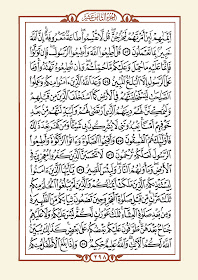 لَئِنْ أَمَرْتَهُمْ لَيَخْرُجُنَّ قُل لَّا تُقْسِمُوا۟ طَاعَةٌ مَّعْرُوفَةٌ إِنَّ ٱللَّهَ
خَبِيرٌۢ بِمَا تَعْمَلُونَ ۝ قُلْ أَطِيعُوا۟ ٱللَّهَ وَأَطِيعُوا۟ ٱلرَّسُولَ فَإِن تَوَلَّوْا۟
فَإِنَّمَا عَلَيْهِ مَا حُمِّلَ وَعَلَيْكُم مَّا حُمِّلْتُمْ وَإِن تُطِيعُوهُ تَهْتَدُوا۟ وَمَا
عَلَى ٱلرَّسُولِ إِلَّا ٱلْبَلَٰغُ ٱلْمُبِينُ ۝ وَعَدَ ٱللَّهُ ٱلَّذِينَ ءَامَنُوا۟ مِنكُمْ وَعَمِلُوا۟
ٱلصَّٰلِحَٰتِ لَيَسْتَخْلِفَنَّهُمْ فِى ٱلْأَرْضِ كَمَا ٱسْتَخْلَفَ ٱلَّذِينَ مِن قَبْلِهِمْ
وَلَيُمَكِّنَنَّ لَهُمْ دِينَهُمُ ٱلَّذِى ٱرْتَضَىٰ لَهُمْ وَلَيُبَدِّلَنَّهُم مِّنۢ بَعْدِ
خَوْفِهِمْ أَمْنًا يَعْبُدُونَنِى لَا يُشْرِكُونَ بِى شَيْـًٔا وَمَن كَفَرَ بَعْدَ ذَٰلِكَ
فَأُو۟لَٰٓئِكَ هُمُ ٱلْفَٰسِقُونَ ۝ وَأَقِيمُوا۟ ٱلصَّلَوٰةَ وَءَاتُوا۟ ٱلزَّكَوٰةَ وَأَطِيعُوا۟
ٱلرَّسُولَ لَعَلَّكُمْ تُرْحَمُونَ ۝ لَا تَحْسَبَنَّ ٱلَّذِينَ كَفَرُوا۟ مُعْجِزِينَ فِى
ٱلْأَرْضِ وَمَأْوَىٰهُمُ ٱلنَّارُ وَلَبِئْسَ ٱلْمَصِيرُ ۝ يَٰٓأَيُّهَا ٱلَّذِينَ ءَامَنُوا۟
لِيَسْتَـْٔذِنكُمُ ٱلَّذِينَ مَلَكَتْ أَيْمَٰنُكُمْ وَٱلَّذِينَ لَمْ يَبْلُغُوا۟ ٱلْحُلُمَ مِنكُمْ
ثَلَٰثَ مَرَّٰتٍ مِّن قَبْلِ صَلَوٰةِ ٱلْفَجْرِ وَحِينَ تَضَعُونَ ثِيَابَكُم مِّنَ ٱلظَّهِيرَةِ
وَمِنۢ بَعْدِ صَلَوٰةِ ٱلْعِشَآءِ ثَلَٰثُ عَوْرَٰتٍ لَّكُمْ لَيْسَ عَلَيْكُمْ وَلَا عَلَيْهِمْ
جُنَاحٌۢ بَعْدَهُنَّ طَوَّٰفُونَ عَلَيْكُم بَعْضُكُمْ عَلَىٰ بَعْضٍ كَذَٰلِكَ يُبَيِّنُ
ٱللَّهُ لَكُمُ ٱلْءَايَٰتِ وَٱللَّهُ عَلِيمٌ حَكِيمٌ ۝ وَإِذَا بَلَغَ ٱلْأَطْفَٰلُ مِنكُمُ
٢٩٨